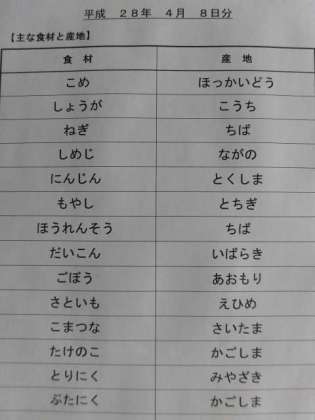 平成 28年 4月 8日分
【主な食材と産地】
食 材 産 地
こめ ほっかいどう
しょうが こうち
ねぎ ちば
しめじ ながの
にんじん とくしま
もやし とちぎ
ほうれんそう ちば
だいこん いばらき
ごぼう あおもり
さといも えひめ
こまつな さいたま
たけのこ かごしま
とりにく みやざき
ぶたにく かごしま